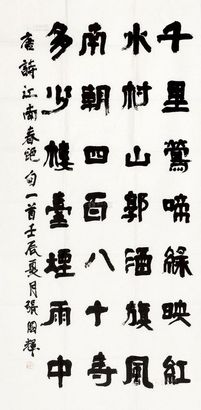 千里鶯啼綠映紅
水村山郭酒旗風
南朝四百八十寺
多少樓臺煙雨中
唐詩江南春絕句一首壬辰夏月張輝